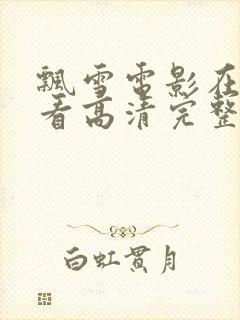 飘雪电影在
看高清完整
白虹贯月